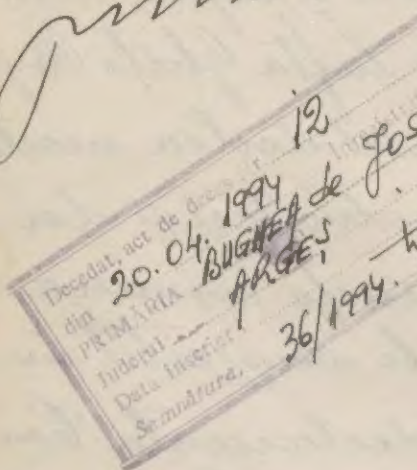 Decedat, act de deces nr. 12
din 20.04.1994
PRIMĂRIA BUGHEA de Jos
Județul ARGEȘ
Data înscrierii 36/1994.
Semnătura,